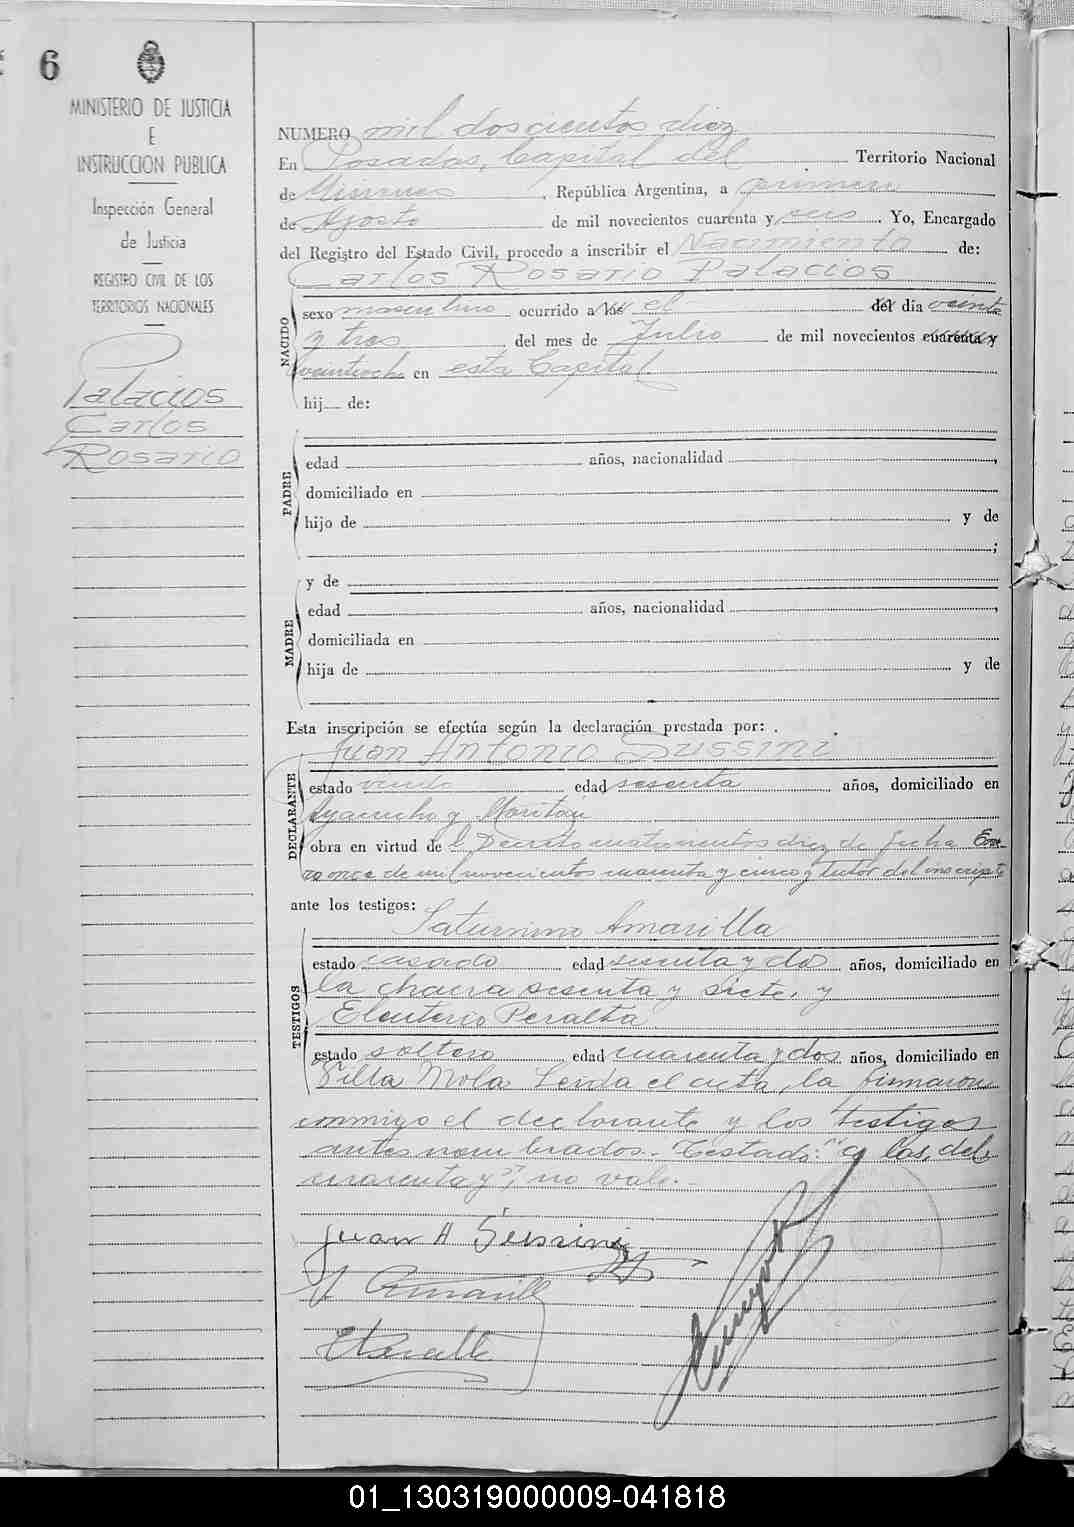 6
MINISTERIO DE JUSTICIA
E
INSTRUCCION PUBLICA
Inspección General
de Justicia
REGISTRO CIVIL DE LOS
TERRITORIOS NACIONALES
Palacios
Carlos
Rosario
NUMERO mil doscientos diez
En Posadas, Capital del Territorio Nacional
de Misiones, República Argentina, a primero
de Agosto de mil novecientos cuarenta y seis. Yo, Encargado
del Registro del Estado Civil, procedo a inscribir el Nacimiento de:
Carlos Rosario Palacios
NACIDO
sexo masculino ocurrido a las el del día veinte
y tres del mes de Julio de mil novecientos cuarenta y
veintiocho en esta Capital
hij de:
PADRE
edad años, nacionalidad ,
domiciliado en
hijo de y de
;
MADRE
y de
edad años, nacionalidad ,
domiciliada en
hija de y de
Esta inscripción se efectúa según la declaración prestada por:
Juan Antonio Sussini
DECLARANTE
estado viudo edad sesenta años, domiciliado en
Ayacucho y
obra en virtud de l Decreto cuatrocientos diez de fecha Ene-
ro once de mil novecientos cuarenta y cinco y tutor del inscripto
ante los testigos:
Saturnino Amarilla
TESTIGOS
estado casado edad sesenta y dos años, domiciliado en
la chacra sesenta y siete, y
Eleuterio Peralta
estado soltero edad cuarenta y dos años, domiciliado en
Villa Mola. Leida el acta, la firmaron
conmigo el declarante y los testigos
antes nombrados.- Testado: "a las, del,
cuarenta y", no vale.-
Juan A Sussini
Amarilla
EPeralta
01_130319000009-041818